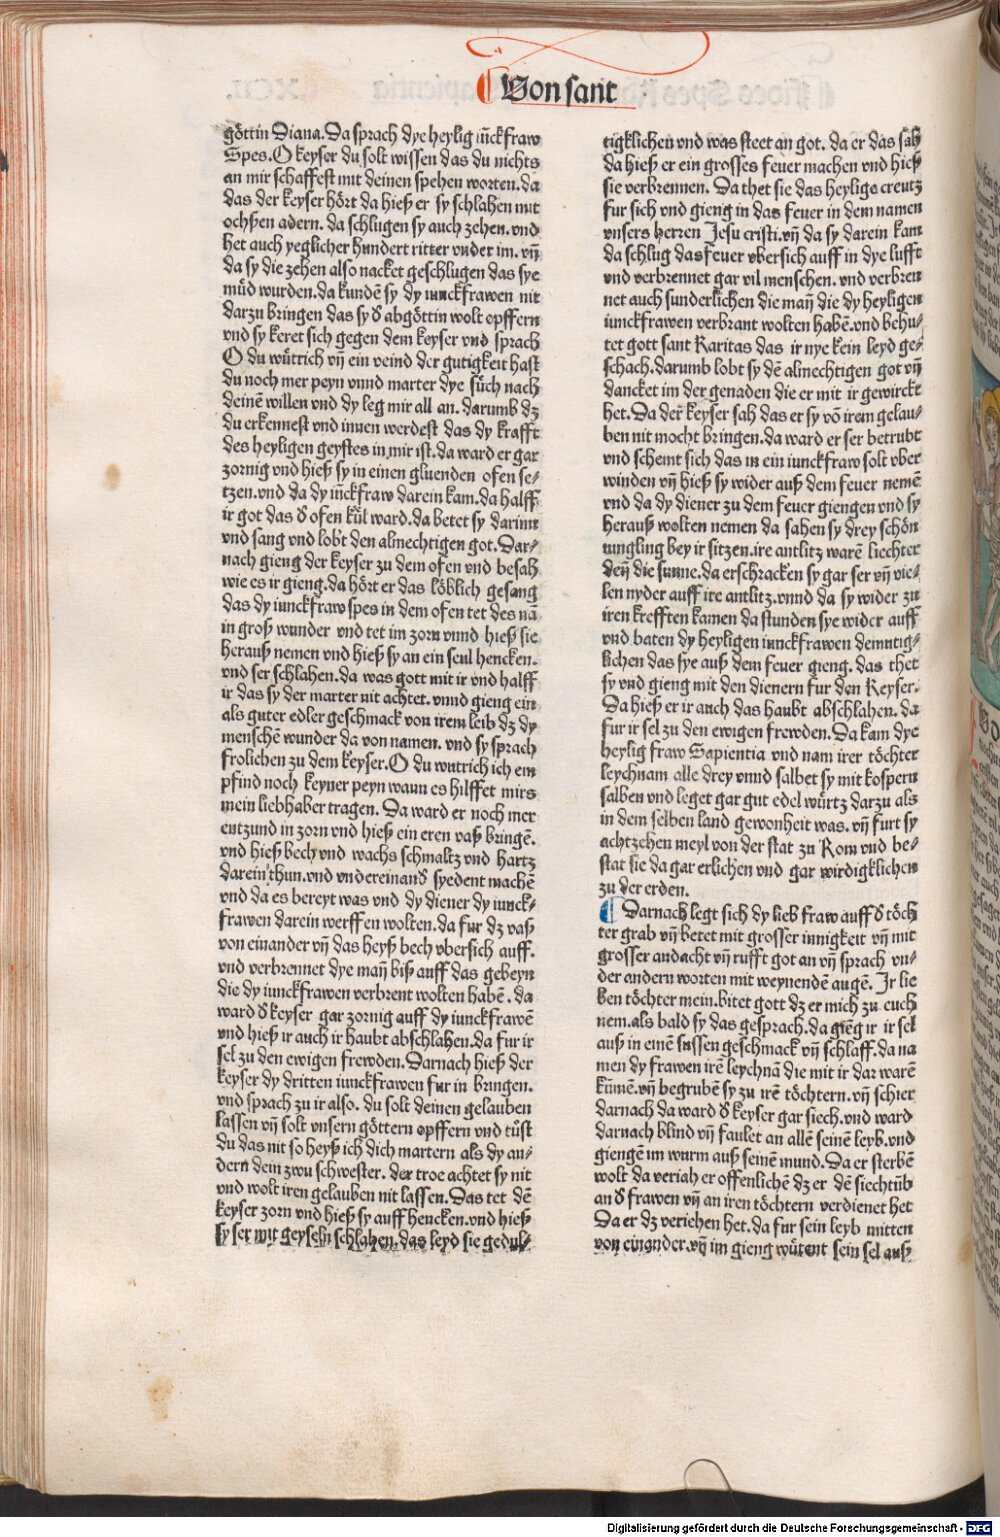 Von sant
göttin Diana. Da sprach dye heylig iũckfraw
Spes. O keyser du solt wissen das du nichts
an mir schaffest mit deinen spehen worten. da
das der keyser hört da hieß er sy schlahen mit
ochßen adern. da schlugen sy auch zehen. vnd
het auch yeglicher hundert ritter vnder im. vñ
da sy die zehen also nacket geschlugen das sye
müd wurden. da kundẽ sy dy iunckfrawen nit
darzu bringen das sy d̕ abgöttin wolt opffern
vnd sy keret sich gegen dem keyser vnd sprach
O du wüttrich vñ ein veind der gutigkeit hast
du noch mer peyn vnnd marter dye such nach
deinẽ willen vnd dy leg mir all an. darumb dz
du erkennest vnd innen werdest das dy krafft
des heyligen geystes in mir ist. da ward er gar
zornig vnd hieß sy in einen gluenden ofen se⸗
tzen. vnd da dy iũckfraw darein kam. da halff
ir got das d̕ ofen kül ward. da betet sy darinn
vnd sang vnd lobt den almechtigen got. Dar⸗
nach gieng der keyser zu dem ofen vnd besah
wie es ir gieng. da hört er das löblich gesang
das dy iunckfraw spes in dem ofen tet des nã
in groß wunder vnd tet im zorn vnnd hieß sie
herauß nemen vnd hieß sy an ein seul hencken.
vnd ser schlahen. da was gott mit ir vnd halff
ir das sy der marter nit achtet. vnnd gieng ein
als guter edler geschmack von irem leib dz dy
menschẽ wunder da von namen. vnd sy sprach
frolichen zu dem keyser. O du wutrich ich em
pfind noch keyner peyn wann es hilffet mirs
mein liebhaber tragen. Da ward er noch mer
entzund in zorn vnd hieß ein eren vaß bringẽ.
vnd hieß bech vnd wachs schmaltz vnd hartz
darein thun. vnd vndereinand̕ syedent machẽ
vnd da es bereyt was vnd dy diener dy iunck⸗
frawen darein werffen wolten. da fur dz vaß
von einander vñ das heyß bech vbersich auff.
vnd verbrennet dye mañ biß auff das gebeyn
die dy iunckfrawen verbrent wolten habẽ. da
ward d̕ keyser gar zornig auff dy iunckfrawẽ
vnd hieß ir auch ir haubt abschlahen. da fur ir
sel zu den ewigen frewden. Darnach hieß der
keyser dy dritten iunckfrawen fur in bringen.
vnd sprach zu ir also. du solt deinen gelauben
lassen vñ solt vnsern göttern opffern vnd tüst
du das nit so heyß ich dich martern als dy an⸗
dern dein zwu schwester. der troe achtet sy nit
vnd wolt iren gelauben nit lassen. Das tet dẽ
keyser zorn vnd hieß sy auff hencken. vnd hieß
sy ser mit geyseln schlahen. das leyd sie gedul⸗
tigklichen vnd was steet an got. da er das sah
da hieß er ein grosses feuer machen vnd hieß
sie verbrennen. Da thet sie das heylige creutz
fur sich vnd gieng in das feuer in dem namen
vnsers herren Jesu cristi. vñ da sy darein kam
da schlug das feuer vbersich auff in dye lufft
vnd verbrennet gar vil menschen. vnd verbren
net auch sunderlichen die mañ die dy heyligen
iunckfrawen verbrant wolten habẽ. vnd behu⸗
tet gott sant Karitas das ir nye kein leyd ge⸗
schach. darumb lobt sy dẽ almechtigen got vñ
dancket im der genaden die er mit ir gewircket
het. Da der keyser sah das er sy võ irem gelau⸗
ben nit mocht bringen. da ward er ser betrubt
vnd schemt sich das in ein iunckfraw solt vber
winden vñ hieß sy wider auß dem feuer nemẽ
vnd da dy diener zu dem feuer giengen vnd sy
herauß wolten nemen da sahen sy drey schön
iungling bey ir sitzen. ire antlitz warẽ liechter
deñ die sunne. da erschracken sy gar ser vñ vie⸗
len nyder auff ire antlitz. vnnd da sy wider zu
iren krefften kamen da stunden sye wider auff
vnd baten dy heyligen iunckfrawen demutig⸗
lichen das sye auß dem feuer gieng. das thet
sy vnd gieng mit den dienern fur den Keyser.
Da hieß er ir auch das haubt abschlahen. da
fur ir sel zu den ewigen frewden. Da kam dye
heylig fraw Sapientia vnd nam irer töchter
leychnam alle drey vnnd salbet sy mit kospern
salben vnd leget gar gut edel würtz darzu als
in dem selben land gewonheit was. vñ furt sy
achtzehen meyl von der stat zu Rom vnd be⸗
stat sie da gar erlichen vnd gar wirdigklichen
zu der erden.
Darnach legt sich dy lieb fraw auff d̕ töch
ter grab vñ betet mit grosser innigkeit vñ mit
grosser andacht vñ rufft got an vñ sprach vn⸗
der andern worten mit weynendẽ augẽ. Ir lie
ben töchter mein. bitet gott dz er mich zu euch
nem. als bald sy das gesprach. da giẽg ir ir sel
auß in einẽ sussen geschmack vñ schlaff. da na
men dy frawen irẽ leychnã die mit ir dar warẽ
kũmẽ. vñ begrubẽ sy zu irẽ töchtern. vñ schier
darnach da ward d̕ keyser gar siech. vnd ward
darnach blind vñ faulet an allẽ seinẽ leyb. vnd
giengẽ im wurm auß seinẽ mund. Da er sterbẽ
wolt da veriah er offenlichẽ dz er dẽ siechtũb
an d̕ frawen vñ an iren töchtern verdienet het
Da er dz verichen het. da fur sein leyb mitten
von einander. vñ im gieng wütent sein sel auß
Digitalisierung gefördert durch die Deutsche Forschungsgemeinschaft - DFG